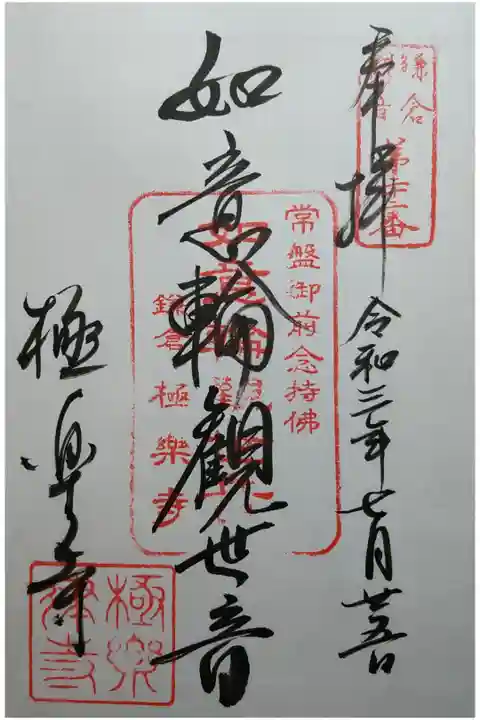 奉拝
令和三年七月廿五日
鎌倉
第廿二番
如意輪觀世音
常盤御前念持佛
鎌倉 極樂寺
極楽寺
極樂寺